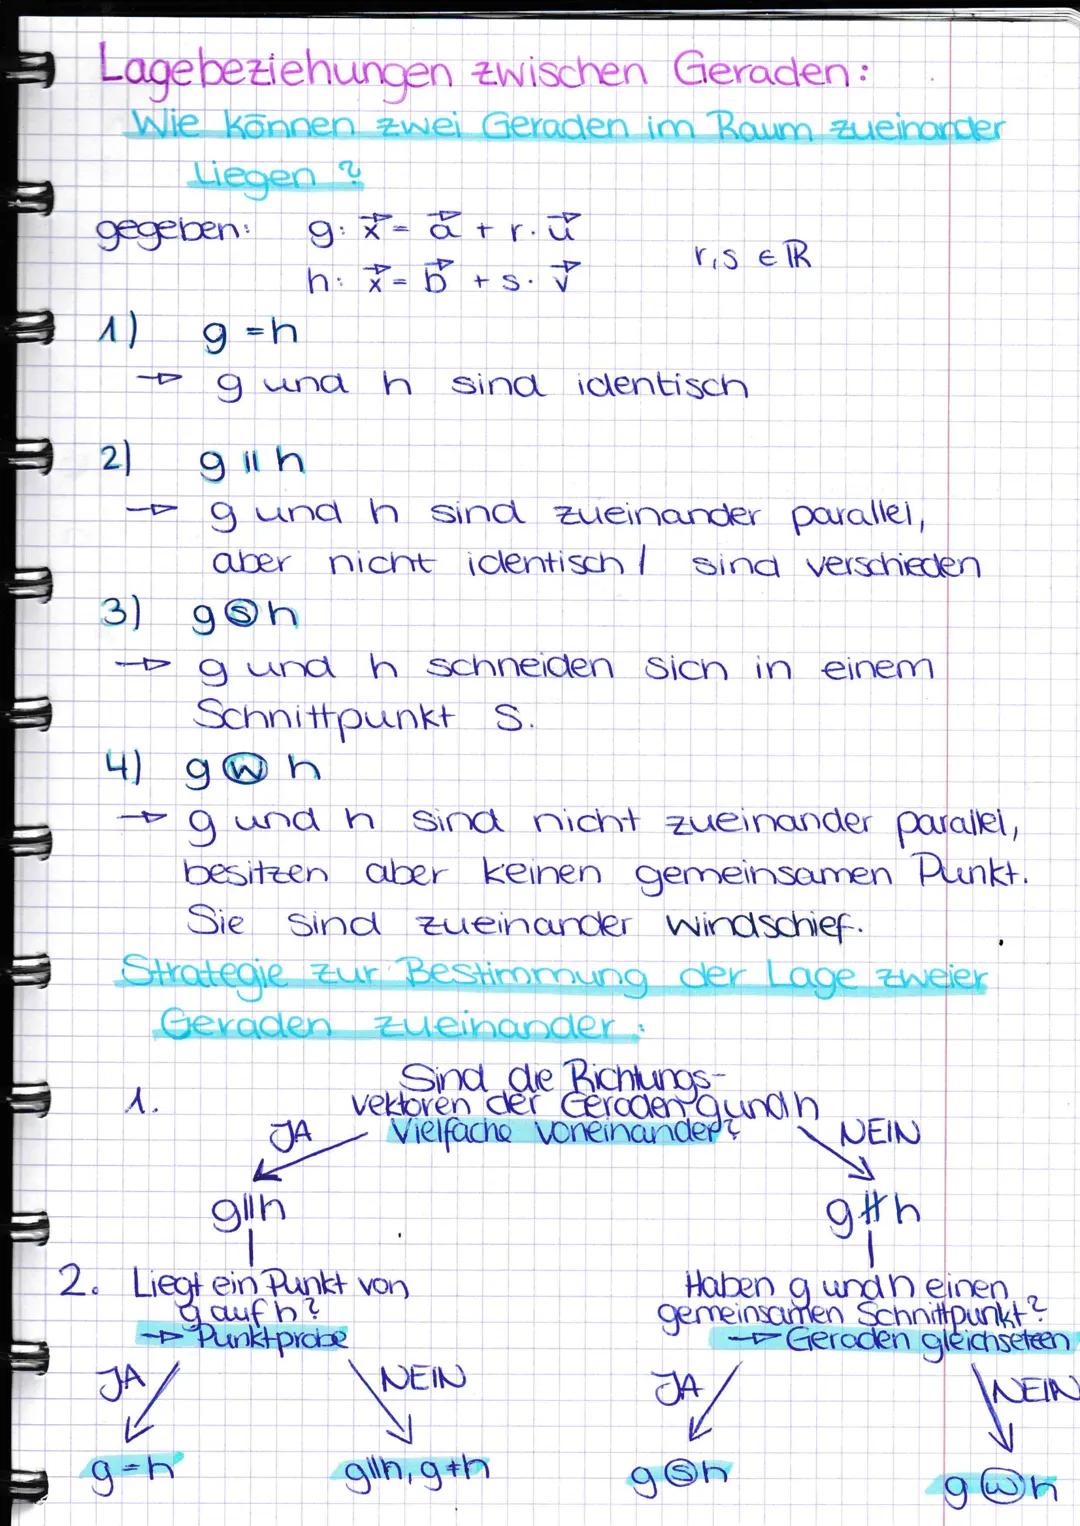 Lagebeziehungen zwischen Geraden:
Wie können zwei Geraden im Raum zueinander
Liegen?
gegeben: g: x⃗ = a⃗ + r · u⃗
h: x⃗ = b⃗ + s · v⃗
r,s ∈ ℝ
1) g = h
→ g und h sind identisch
2) g || h
→ g und h sind zueinander parallel,
aber nicht identisch / sind verschieden
3) g Ⓢ h
→ g und h schneiden sich in einem
Schnittpunkt S.
4) g Ⓦ h
→ g und h sind nicht zueinander parallel,
besitzen aber keinen gemeinsamen Punkt.
Sie sind zueinander windschief.
Strategie zur Bestimmung der Lage zweier
Geraden zueinander:
1. Sind die Richtungs-
vektoren der Geraden g und h
Vielfache voneinander?
JA NEIN
g || h g ∦ h
2. Liegt ein Punkt von
g auf h?
→ Punktprobe
Haben g und h einen
gemeinsamen Schnittpunkt?
→ Geraden gleichsetzen
JA NEIN JA NEIN
g = h g || h, g ≠ h g Ⓢ h g Ⓦ h